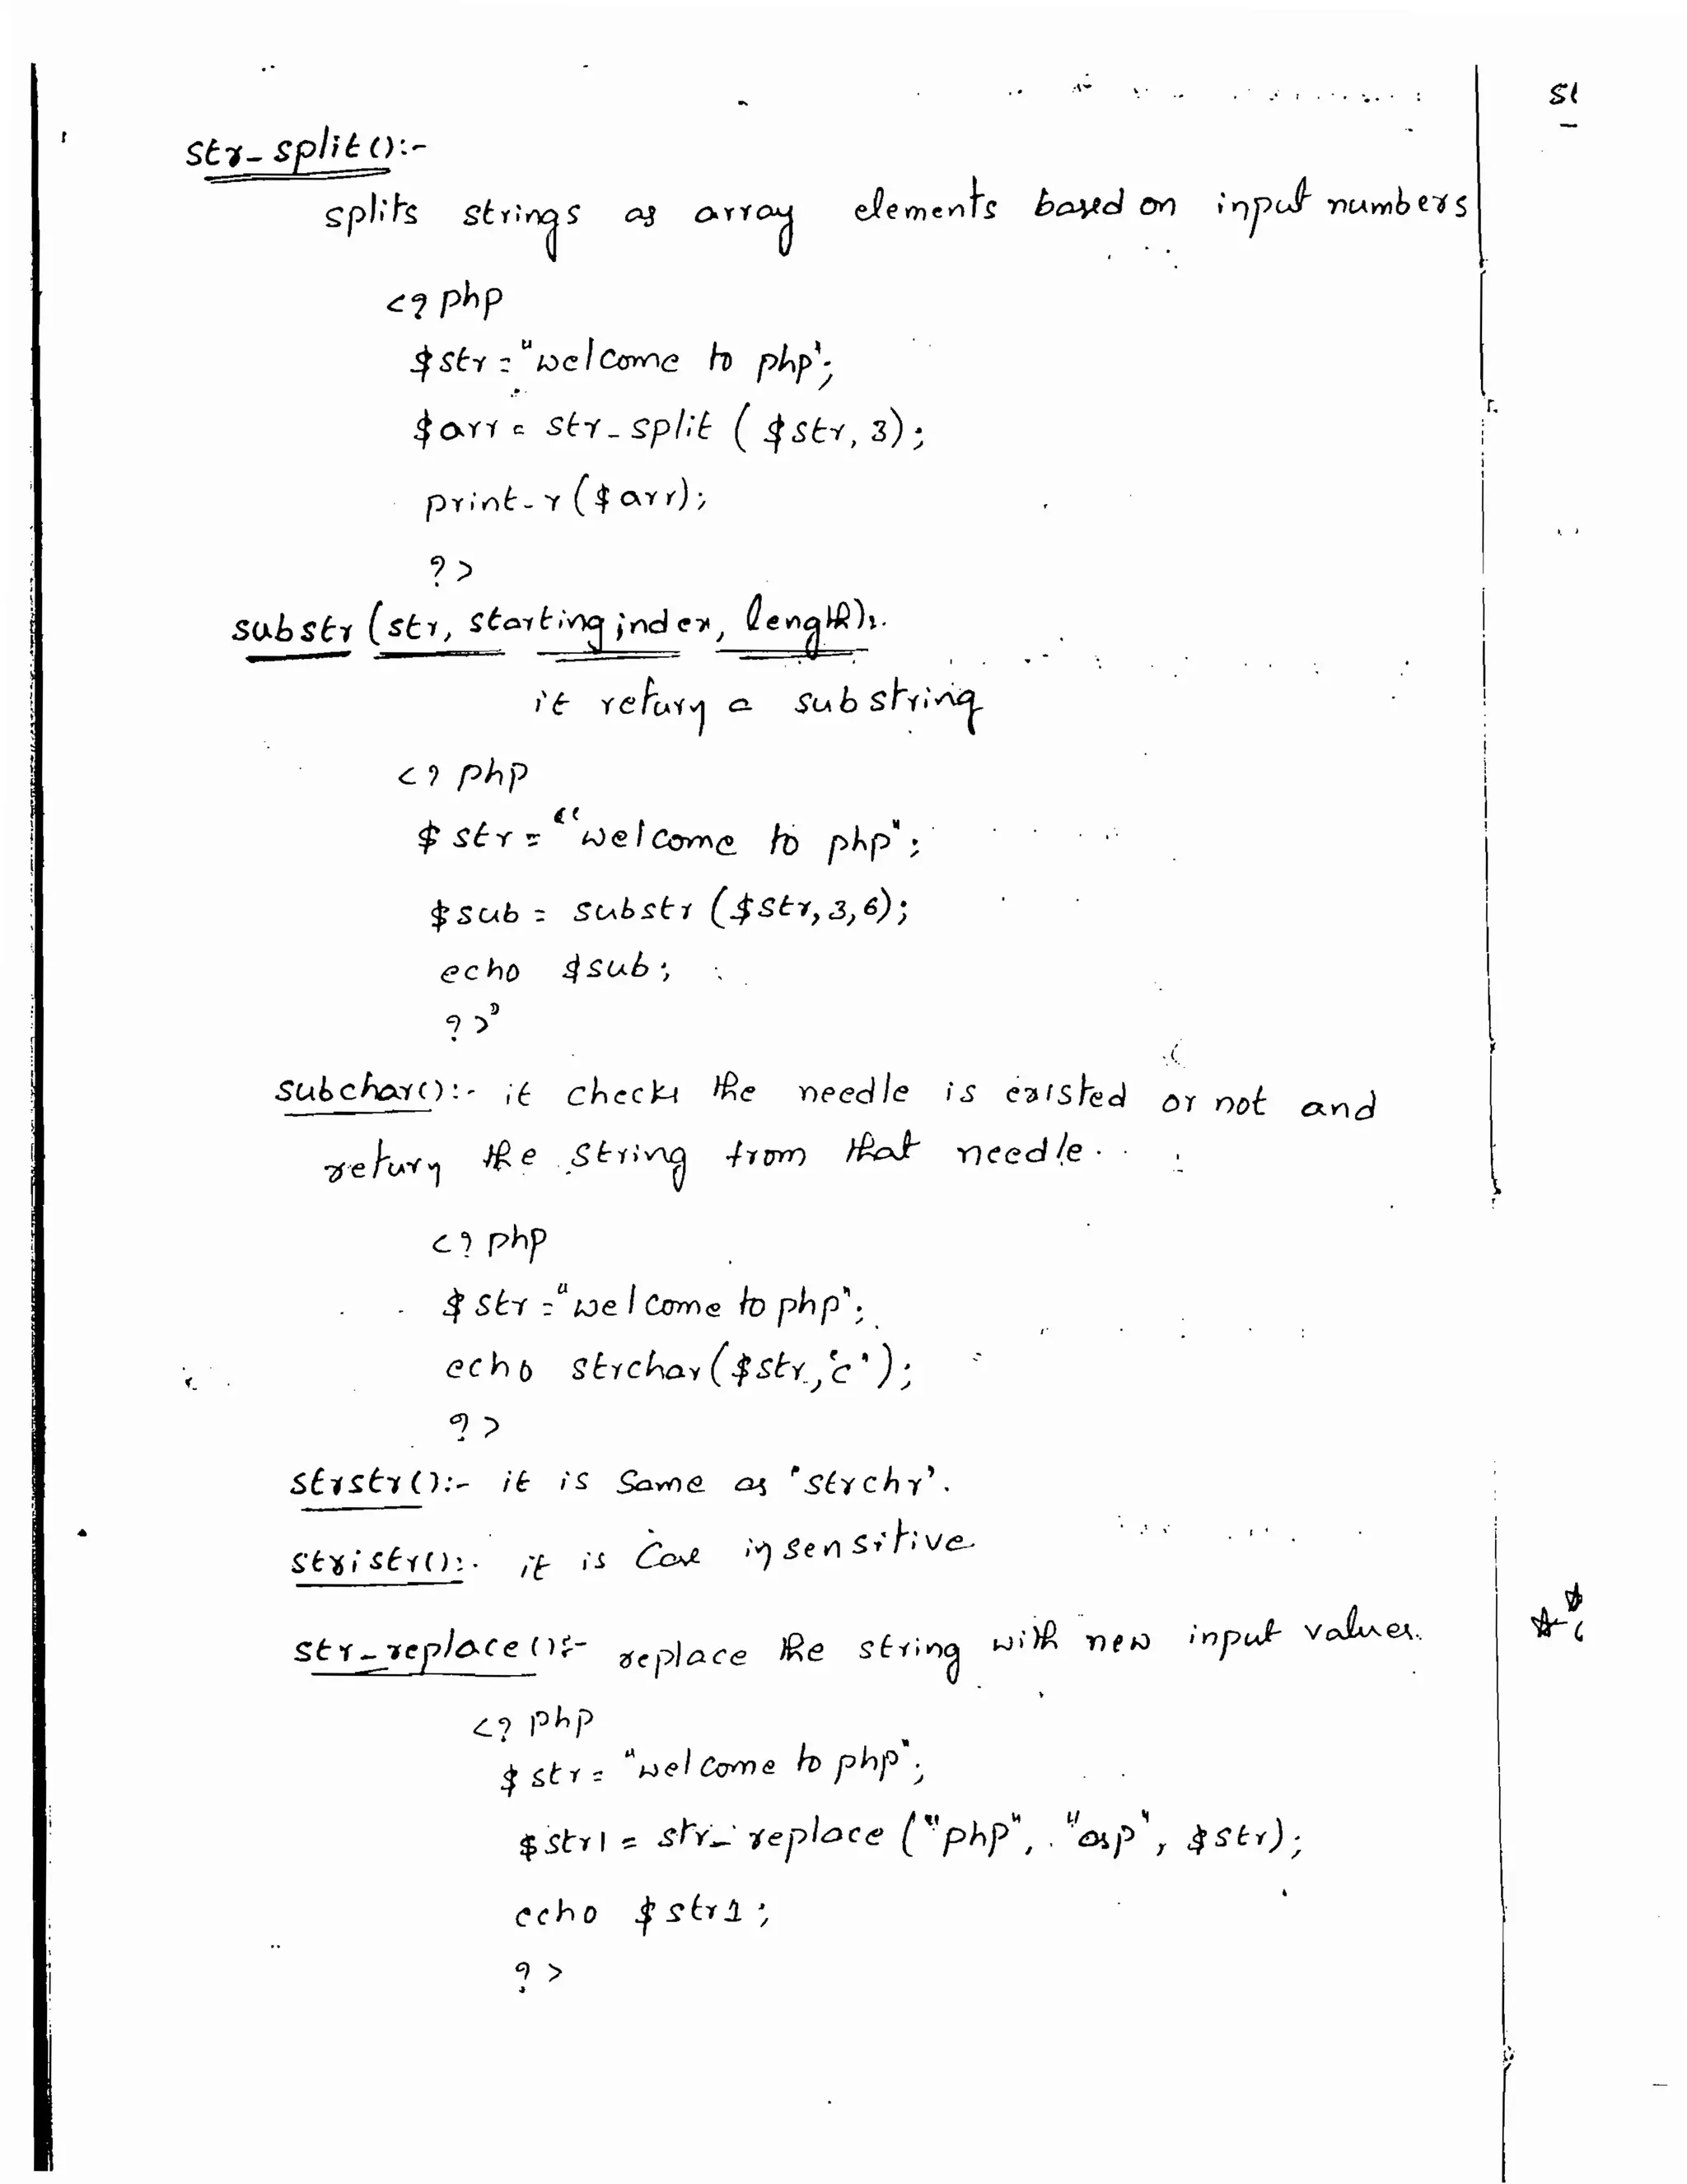 st
str_split():-
splits strings as array elements based on input numbers
<?php
$str="welcome to php";
$arr= str_split ($str, 3);
print_r($arr);
?>
substr (str, starting index, length):-
it return a substring
<?php
$str = "welcome to php";
$sub = substr ($str,3,6);
echo $sub;
?>
subchar():- it checks the needle is existed or not and
return the string from that needle.
<?php
$str="welcome to php";
echo strchar($str,'c');
?>
strstr():- it is Same as 'strchr'.
stristr():- it is Case insensitive
str_replace():- replace the string with new input values.
<?php
$str = "welcome to php";
$str1 = str_replace ("php", "asp", $str);
echo $str1;
?>